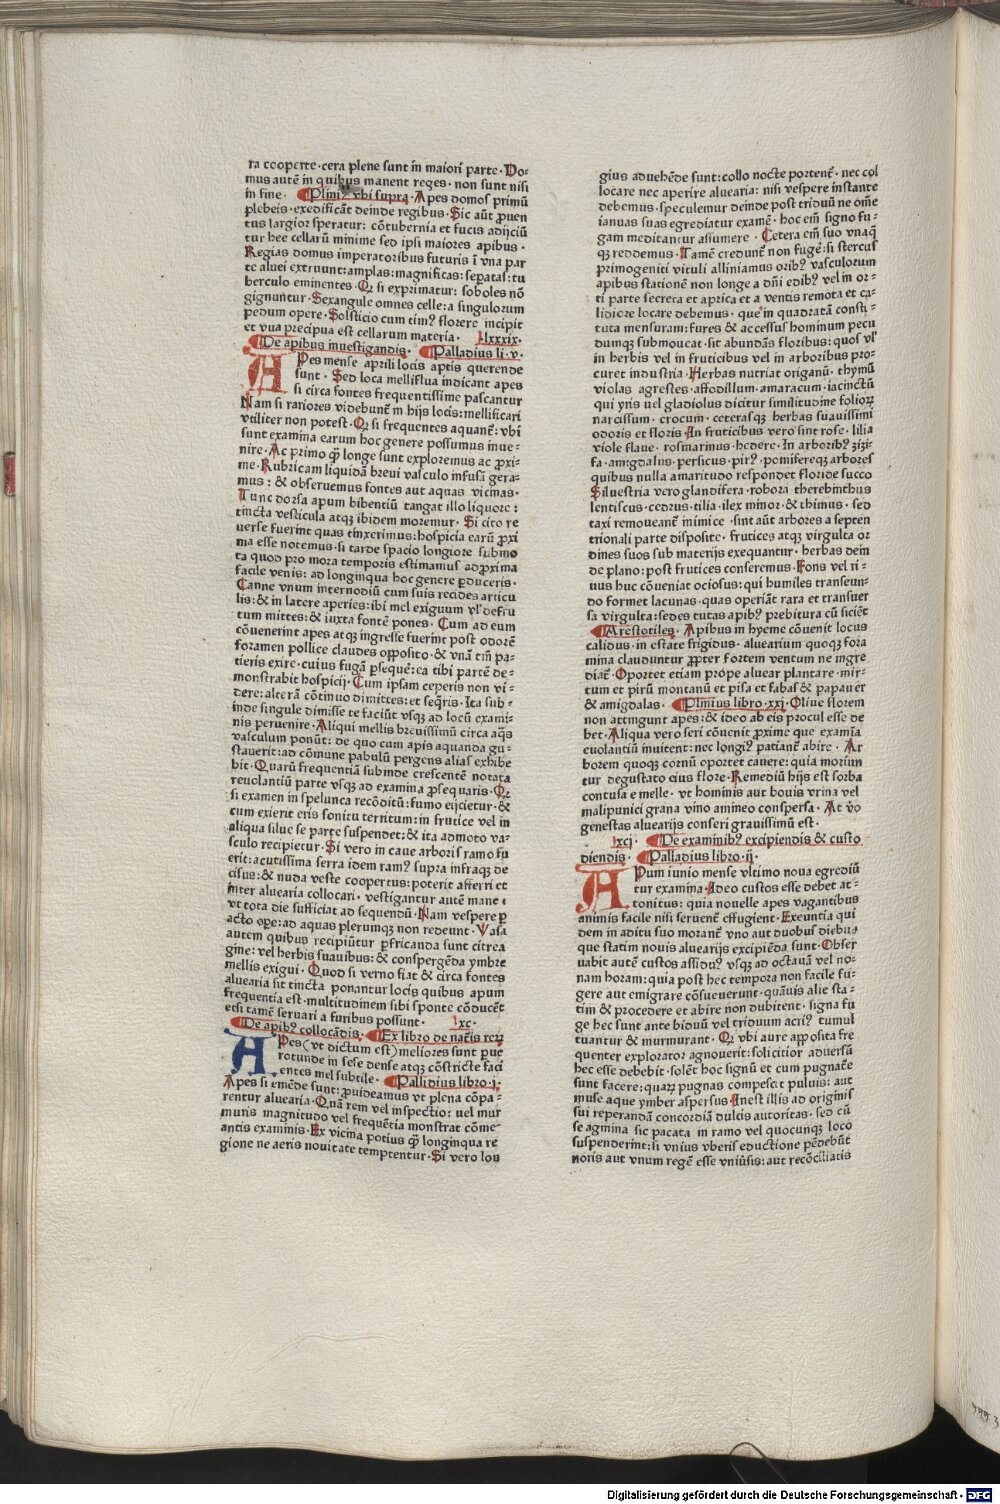 ra cooperte·cera plene sunt in maiori parte·Do-
mus autē in quibus manent reges·non sunt nisi
in fine· Plini⁹ vbi supra· Apes domos primū
plebeis·exedificāt deinde regibus·Sic aūt ꝓuen
tus largior speratur: cōtubernia et fucis adijciū
tur hee cellarū minime sed ipsi maiores apibus·
Regias domus imperatoribus futuris ī vna par
te aluei extruunt:amplas:magnificas:sepatas:tu
berculo eminentes·Qꝫ si exprimatur: soboles nō
gignuntur·Sexangule omnes celle:a singulorum
pedum opere·Solsticio cum tim⁹ florere incipit
et vua precipua est cellarum materia· lxxxix·
De apibus inuestigandis· Palladius li·v·
APes mense aprili locis aptis querende
sunt·Sed loca melliflua indicant apes
si circa fontes frequentissime pascantur
Nam si rariores videbunt̄ in hijs locis:mellificari
vtiliter non potest·Qꝫ si frequentes aquant̄: vbi
sunt examina earum hoc genere possumus inue-
nire·Ac primo qꝫ longe sunt exploremus ac ꝓxi-
me·Rubricam liquidā breui vasculo infusā gera-
mus: & obseruemus fontes aut aquas vicinas·
Tunc dorsa apum bibentiū tangat illo liquore:
tincta vesticula atqꝫ ibidem moremur·Si cito re
uerse fuerint quas tinxerimus:hospicia earū ꝓxi
ma esse notemus·si tarde spacio longiore submo
ta quod pro mora temporis estimamus ad ꝓxima
facile venis: ad longinqua hoc genere ꝑduceris·
Canne vnum internodiū cum suis recides articu
lis:& in latere aperies:ibi mel exiguum vl' defru
tum mittes:& iuxta fontē pones·Cum ad eum
cōuenerint apes atqꝫ ingresse fuerint post odorē
foramen pollice claudes opposito·& vnā tm̄ pa-
tieris exire·cuius fugā ꝑsequē:ea tibi partē de-
monstrabit hospicij·Cum ipsam ceperis non vi-
dere:alterā cōtinuo dimittes:et seq̄ris·Ita sub-
inde singule dimisse te faciūt vsqꝫ ad locū exami-
nis peruenire·Aliqui mellis breuissimū circa aq̄s
vasculum ponūt: de quo cum apis aquanda gu-
stauerit:ad cōmune pabulū pergens alias exhibe
bit·Quarū frequentiā subinde crescentē notata
reuolantiū parte vsqꝫ ad examina ꝓsequaris·Qꝫ
si examen in spelunca recōditū:fumo eijcietur·&
cum exierit eris sonitu territum:in frutice vel in
aliqua silue se parte suspendet:& ita admoto va-
sculo recipietur·Si vero in caue arboris ramo fu
erit:acutissima serra idem ram⁹ supra infraqꝫ de
cisus:& nuda veste coopertus:poterit afferri et
inter aluearia collocari·vestigantur autē mane·
vt tota die sufficiat ad sequendū·Nam vespere ꝑ
acto oꝑe:ad aquas plerumqꝫ non redeunt·Vasa
autem quibus recipiūtur ꝑfricanda sunt citrea
gine: vel herbis suauibus:& conspergēda ymbre
mellis exigui·Quod si verno fiat & circa fontes
aluearia sit tincta ponantur locis quibus apum
frequentia est·multitudinem sibi sponte cōducēt
etsi tamē seruari a furibus possunt· xc·
De apib⁹ collocādis· Ex libro de naēis rerꝝ
APes(vt dictum est)meliores sunt ꝑue
rotunde in sese dense atqꝫ cōstricte faci
entes mel subtile· Palladius libro·j·
Apes si emēde sunt: ꝓuideamus vt plena cōpa-
rentur aluearia·Quā rem vel inspectio: uel mur
muris magnitudo vel frequētia monstrat cōme-
antis examinis·Ex vicina potius qꝫ longinqua re
gione ne aeris nouitate temptentur·Si vero lon
gius aduehēde sunt:collo nocte portent̄·nec col
locare nec aperire aluearia: nisi vespere instante
debemus·speculemur deinde post triduū ne om̄e
ianuas suas egrediatur examē·hoc em̄ signo fu-
gam meditantur assumere·Cetera em̄ suo vnaq̄
qꝫ reddemus·Tamē credunt̄ non fugē:si stercus
primogeniti vituli alliniamus orib⁹ vasculorum
apibus stationē non longe a dn̄i edib⁹ vel in or-
ti parte secreta et aprica et a ventis remota et ca-
lidiore locare debemus·que in quadratā consti-
tuta mensuram:fures & accessus hominum pecu
dumqꝫ submoueat·sit abundās floribus:quos vl'
in herbis vel in fruticibus vel in arboribus pro-
curet industria·Herbas nutriat origanū·thymū
violas agrestes·affodillum·amaracum·iacinctū
qui yris uel gladiolus dicitur similitudine folioꝝ
narcissum·crocum·ceterasqꝫ herbas suauissimi
odoris et floris·In fruticibus vero sint rose·lilia
viole flaue·rosmarinus·hedere·In arborib⁹ zizi-
fa·amigdalus·persicus·pir⁹·pomifereqꝫ arbores
quibus nulla amaritudo respondet floride succo
Siluestria vero glandifera·robora therebinthus
lentiscus·cedrus·tilia·ilex minor·& thimus·sed
taxi remoueant̄ inimice·sint aūt arbores a septen
trionali parte disposite·frutices atqꝫ virgulta or
dines suos sub materijs exequantur·herbas dein
de plano:post frutices conseremus·Fons vel ri-
uus huc cōueniat ociosus:qui humiles transeun-
do formet lacunas·quas operiāt rara et transuer
sa virgulta:sedes tutas apib⁹ prebitura cū siciēt
Arestotiles·Apibus in hyeme cōuenit locus
calidus·in estate frigidus·aluearium quoqꝫ fora
mina clauduntur ꝓpter fortem ventum ne ingre
diat̄·Oportet etiam prope aluear plantare·mir-
tum et pirū montanū et pisa et fabas & papauer
& amigdalas· Plinius libro·xxj·Oliue florem
non attingunt apes:& ideo ab eis procul esse de
bet·Aliqua vero seri cōuenit ꝓxime que examīa
euolantiū inuitent:nec longi⁹ patiant̄ abire·Ar
borem quoqꝫ cornū oportet cauere:quia moriun
tur degustato eius flore·Remediū hijs est sorba
contusa e melle·vt hominis aut bouis vrina vel
malipunici grana vino amineo conspersa·At v̄o
genestas aluearijs conseri grauissimū est·
xcj· De examinib⁹ excipiendis & custo
diendis· Palladius libro·ij·
APum iunio mense vltimo noua egrediū
tur examina·Ideo custos esse debet at-
tonitus: quia nouelle apes vagantibus
animis facile nisi seruent̄ effugient·Exeuntia qui
dem in aditu suo morant̄ vno aut duobus diebus
que statim nouis aluearijs excipiēda sunt·Obser
uabit autē custos assidu⁹ vsqꝫ ad octauā vel no-
nam horam:quia post hec tempora non facile fu-
gere aut emigrare cōsueuerunt·quāuis alie sta-
tim & procedere et abire non dubitent·signa fu
ge hec sunt ante biduū vel triduum acri⁹ tumul
tuantur & murmurant·Qꝫ vbi aure apposita fre
quenter explorator agnouerit:solicitior aduersū
hec esse debebit·solēt hoc signū et cum pugnat̄e
sunt facere:quaꝝ pugnas compescit puluis: aut
mulse aque ymber aspersus·Inest illis ad originis
sui reperandā concordiā dulcis autoritas·sed cū
se agmina sic pacata in ramo vel quocunqꝫ loco
suspenderint:si vnius vberis eductione pēdebūt
noris aut vnum regē esse vniūsis:aut recōciliatis
Digitalisierung gefördert durch die Deutsche Forschungsgemeinschaft - DFG